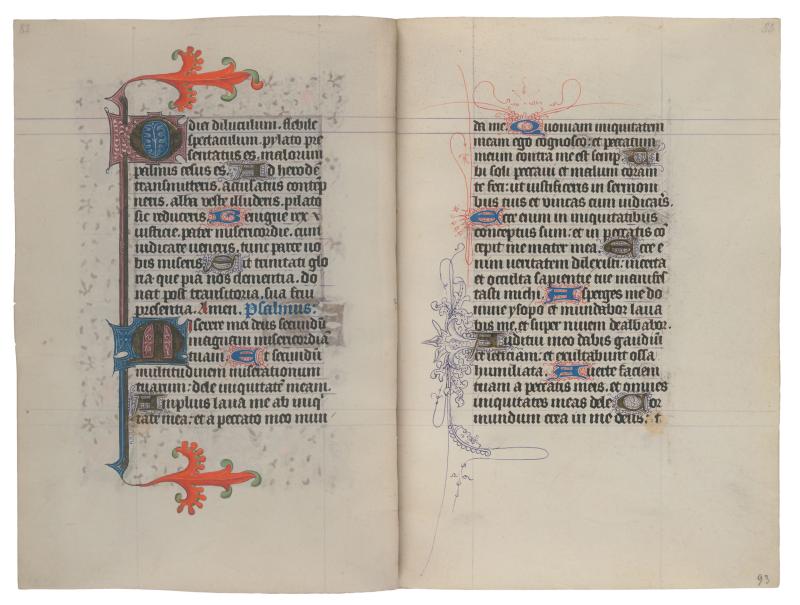 O diei diluculum. flebile
spectaculum. pylato pre
sentatus es. malorum
palmis cesus es. Ad herodē
transmitteris. accusatus contēp
neris. alba veste illuderis. pilato
sic reduceris. Benigne rex
iusticie. pater misericordie. cum
iudicare veneris. tunc parce no
bis miseris. Ut trinitati glo
ria que pia nos clementia. do
nat post transitoria. sua frui
presentia. Amen. Psalmus:
Miserere mei deus secundū
magnam misericordiā
tuam. Et secundū
multitudinem miserationum
tuarum: dele iniquitatē meam.
Amplius lava me ab iniqˈ
tate mea: et a peccato meo mun
da me. Quoniam iniquitatem
meam ego cognosco: et peccatum
meum contra me est semp. Ti
bi soli peccavi et malum coram
te feci: ut iustificeris in sermoni
bus tuis et vincas cum iudicaris.
Ecce enim in iniquitatibus
conceptus sum: et in peccatis cō
cepit me mater mea. Ecce e
nim veritatem dilexisti: incerta
et occulta sapientie tue manifes
tasti michi. Asperges me do
mine ysopo et mundabor lava
bis me, et super nivem dealbabor.
Auditui meo dabis gaudiū
et leticiam: et exultabunt ossa
humiliata. Averte faciem
tuam a peccatis meis. et omnes
iniquitates meas dele. Cor
mundum crea in me deus: t
93